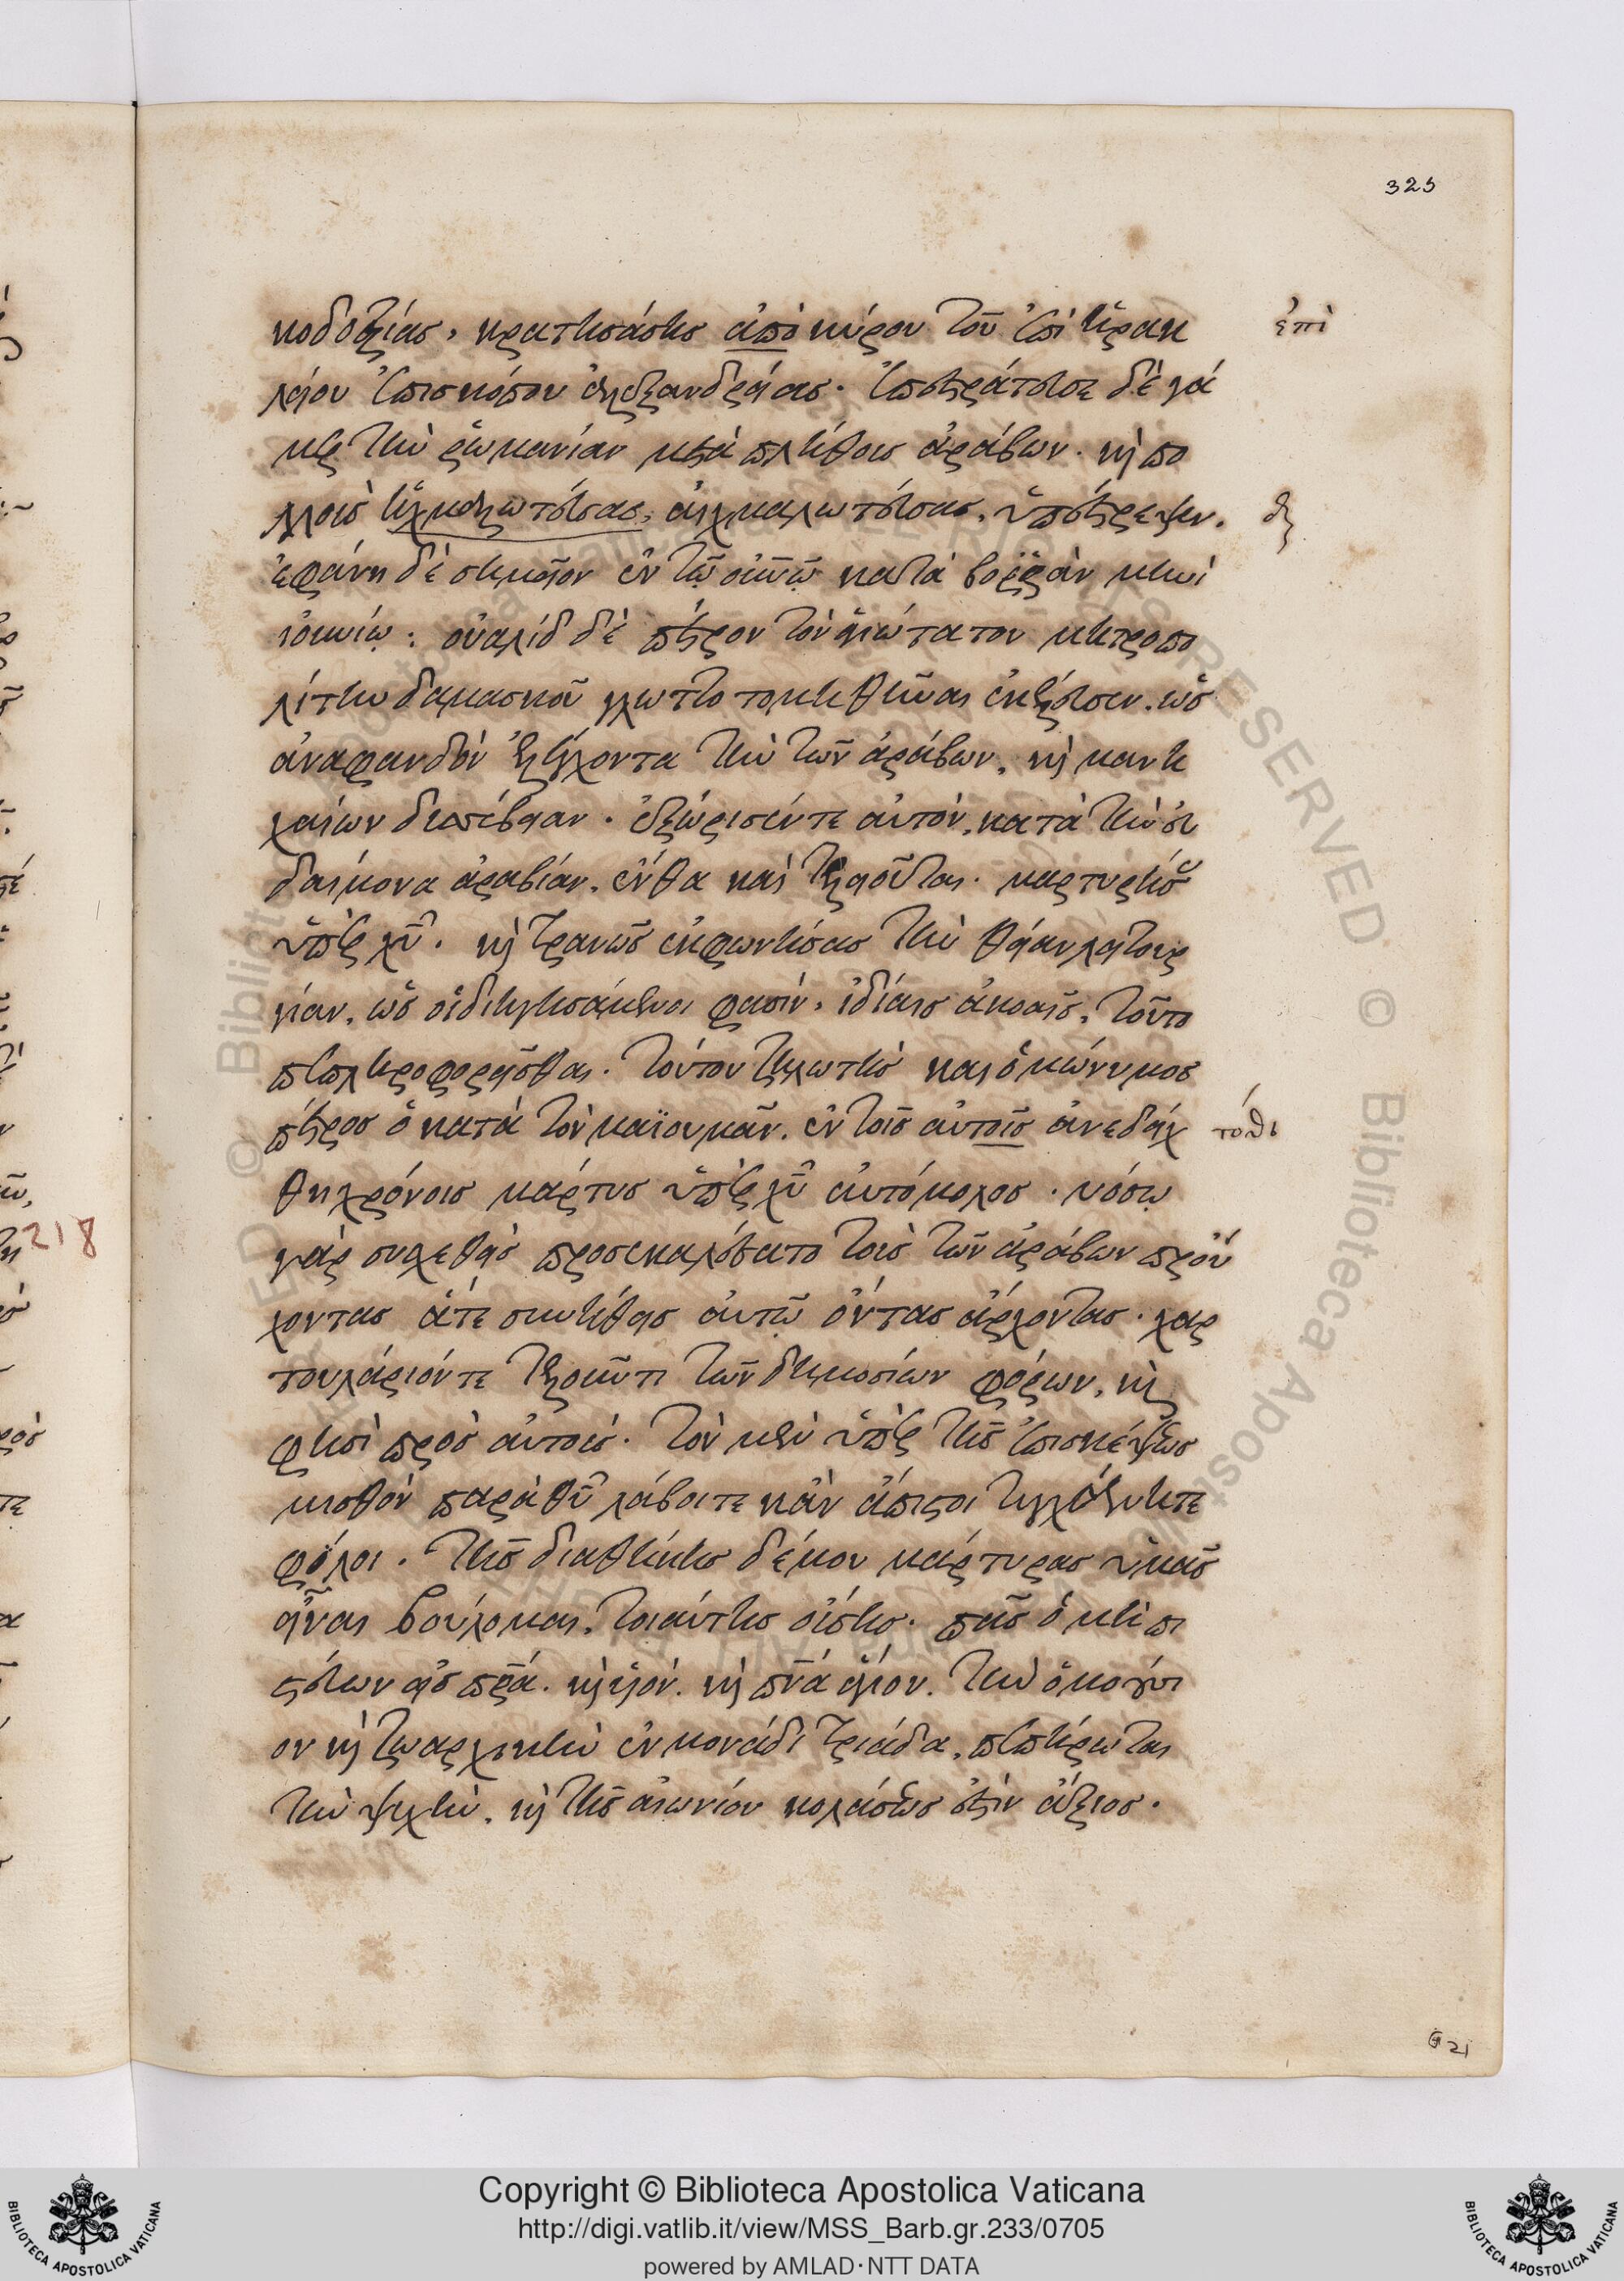 323
κοδοξίας, κρατησάσης ἀπὸ κύρου τοῦ ἐπὶ ἡρακ
ἐπὶ
λείου ἐπισκόπου ἀλεξανδρείας. ἐπεστράτευσε δὲ γά
μερ τὴν ῥωμανίαν μετὰ πλήθους ἀράβων. καὶ πο
λλοὺς ἠχμαλωτεύσας, αἰχμαλωτεύσας, ὑπέστρεψεν.
ἐφάνη δὲ σημεῖον ἐν τῷ οὐνῷ κατὰ βορρὰν μηνὶ
ἰουνίῳ: οὐαλὶδ δὲ πέτρον τὸν ἁγιώτατον μητροπο
λίτην δαμασκοῦ γλωττοτομηθῆναι ἐκέλευσεν. ὡς
ἀναφανδὸν ἐλέγχοντα τὴν τῶν ἀράβων, καὶ μανι
χαίων δυσσέβειαν. ἐξώρισέντε αὐτὸν, κατὰ τὴν εὐ
δαίμονα ἀραβίαν. ἔνθα καὶ τελειοῦται. μαρτυρήσας
ὑπὲρ χῦ. καὶ τρανῶς ἐκφωνήσας τὴν θείαν λειτουρ
γίαν. ὡς οἱ διηγησάμενοι φασὶν. ἰδίαις ἀκοαῖς, τοῦτο
πεπληροφορεῖσθαι. τούτου ζηλωτὴς καὶ ὁμώνυμος
πέτρος ὁ κατὰ τὸν μαϊουμᾶν. ἐν τοῖς αὐτοῖς ἀνεδείχ
τόθι
θη χρόνοις μάρτυς ὑπὲρ χῦ αὐτόμολος. νόσῳ
γὰρ συσχεθεὶς προσεκαλέσατο τοὺς τῶν ἀράβων προὔ
χοντας ἅτε συνήθεις αὐτῷ ὄντας ἄρχοντας. χαρ
τουλάριόντε τελοῦντι τῶν δημοσίων φόρων. καὶ
φησὶ πρὸς αὐτούς. τὸν μὲν ὑπὲρ τῆς ἐπισκέψεως
μισθὸν παρὰ θῦ λάβοιτε κἂν ἄπιστοι τυγχάνητε
φίλοι. τῆς διαθήκης δέ μου μάρτυρας ὑμᾶς
εἶναι βούλομαι. τοιαύτης οὔσης. πᾶς ὁ μὴ πι
στεύων εἰς πρά. καὶ υἱόν. καὶ πνά ἅγιον. τὴν ὁμοούσι
ον καὶ ζωαρχικὴν ἐν μονάδι τριάδα, πεπήρωται
τὴν ψυχὴν. καὶ τῆς αἰωνίου κολάσεως ἐστὶν ἄξιος.
218
21
Copyright © Biblioteca Apostolica Vaticana
http://digi.vatlib.it/view/MSS_Barb.gr.233/0705
powered by AMLAD·NTT DATA
BIBLIOTECA APOSTOLICA VATICANA
BIBLIOTECA APOSTOLICA VATICANA